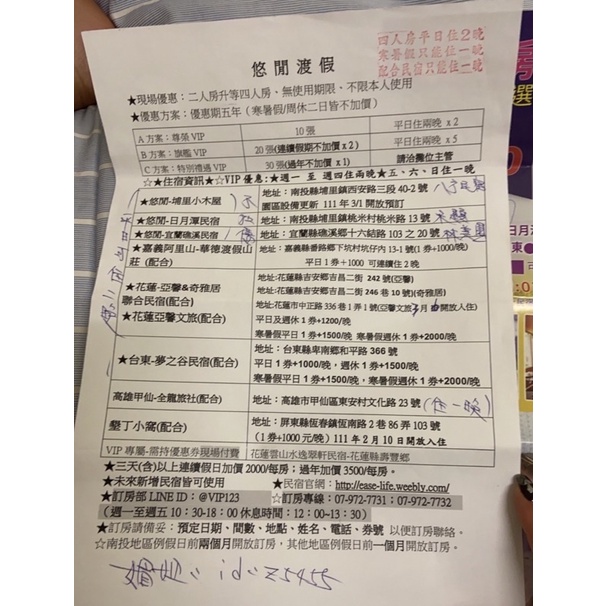 四人房平日住2晚
寒暑假只能住一晚
配合民宿只能住一晚
悠閒渡假
★現場優惠：二人房升等四人房、無使用期限、不限本人使用
★優惠方案：優惠期五年（寒暑假/周休二日皆不加價）
A 方案：尊榮 VIP 10 張 平日住兩晚 x 2
B 方案：旗艦 VIP 20 張(連續假期不加價 x 2) 平日住兩晚 x 5
C 方案：特別禮遇 VIP 30 張(過年不加價 x 1) 請洽攤位主管
☆★住宿資訊★☆VIP 優惠:★週一 至 週四住兩晚★五、六、日住一晚
★悠閒-埔里小木屋 地址：南投縣埔里鎮西安路三段 40-2 號
園區設備更新 111年 3/1 開放預訂
★悠閒-日月潭民宿 地址：南投縣埔里鎮桃米村桃米路 13 號
★悠閒-宜蘭礁溪民宿 地址：宜蘭縣礁溪鄉十六結路 103 之 20 號
★嘉義阿里山-華德渡假山莊 (配合) 地址：嘉義縣番路鄉下坑村坑仔內 13-1號(1 券+1000/晚)
平日 1券+1000 可連續住 2 晚
★花蓮-亞馨&奇雅居聯合民宿(配合)
★花蓮亞馨文旅(配合)
地址:花蓮縣吉安鄉吉昌二街 242 號(亞馨)
地址:花蓮縣吉安鄉吉昌二街 246 巷 10 號)(奇雅居)
地址:花蓮市中正路 336 巷 1 弄 1 號(亞馨文旅 月 開放入住)
平日及週休 1 券+1200/晚
寒暑假平日 1 券+1500/晚 寒暑假週休 1 券+2000/晚
★台東-夢之谷民宿(配合) 地址：台東縣卑南鄉和平路 366 號
平日 1 券+1000/晚，週休 1 券+1500/晚
寒暑假平日 1 券+1500/晚，寒暑假週休 1 券+2000/晚
高雄甲仙-全龍旅社(配合) 地址：高雄市甲仙區東安村文化路 23 號 (住一晚)
墾丁小窩(配合) 地址：屏東縣恆春鎮恆南路 2 巷 86 弄 103 號
(1 券+1000 元/晚) 111 年 2 月 10 日開放入住
VIP 專屬-需持優惠券現場付費 花蓮雲山水逸翠軒民宿-花蓮縣壽豐鄉
★三天(含)以上連續假日加價 2000/每房；過年加價 3500/每房。
★未來新增民宿皆可使用 ★民宿官網：http://ease-life.weebly.com/
★訂房部 LINE ID：@VIP123 ☆訂房專線：07-972-7731；07-972-7732
（週一至週五 10:30-18：00 休息時間：12：00~13：30）
★訂房請備妥：預定日期、間數、地點、姓名、電話、券號 以便訂房聯絡。
☆南投地區例假日前兩個月開放訂房，其他地區例假日前一個月開放訂房。
id: z5455